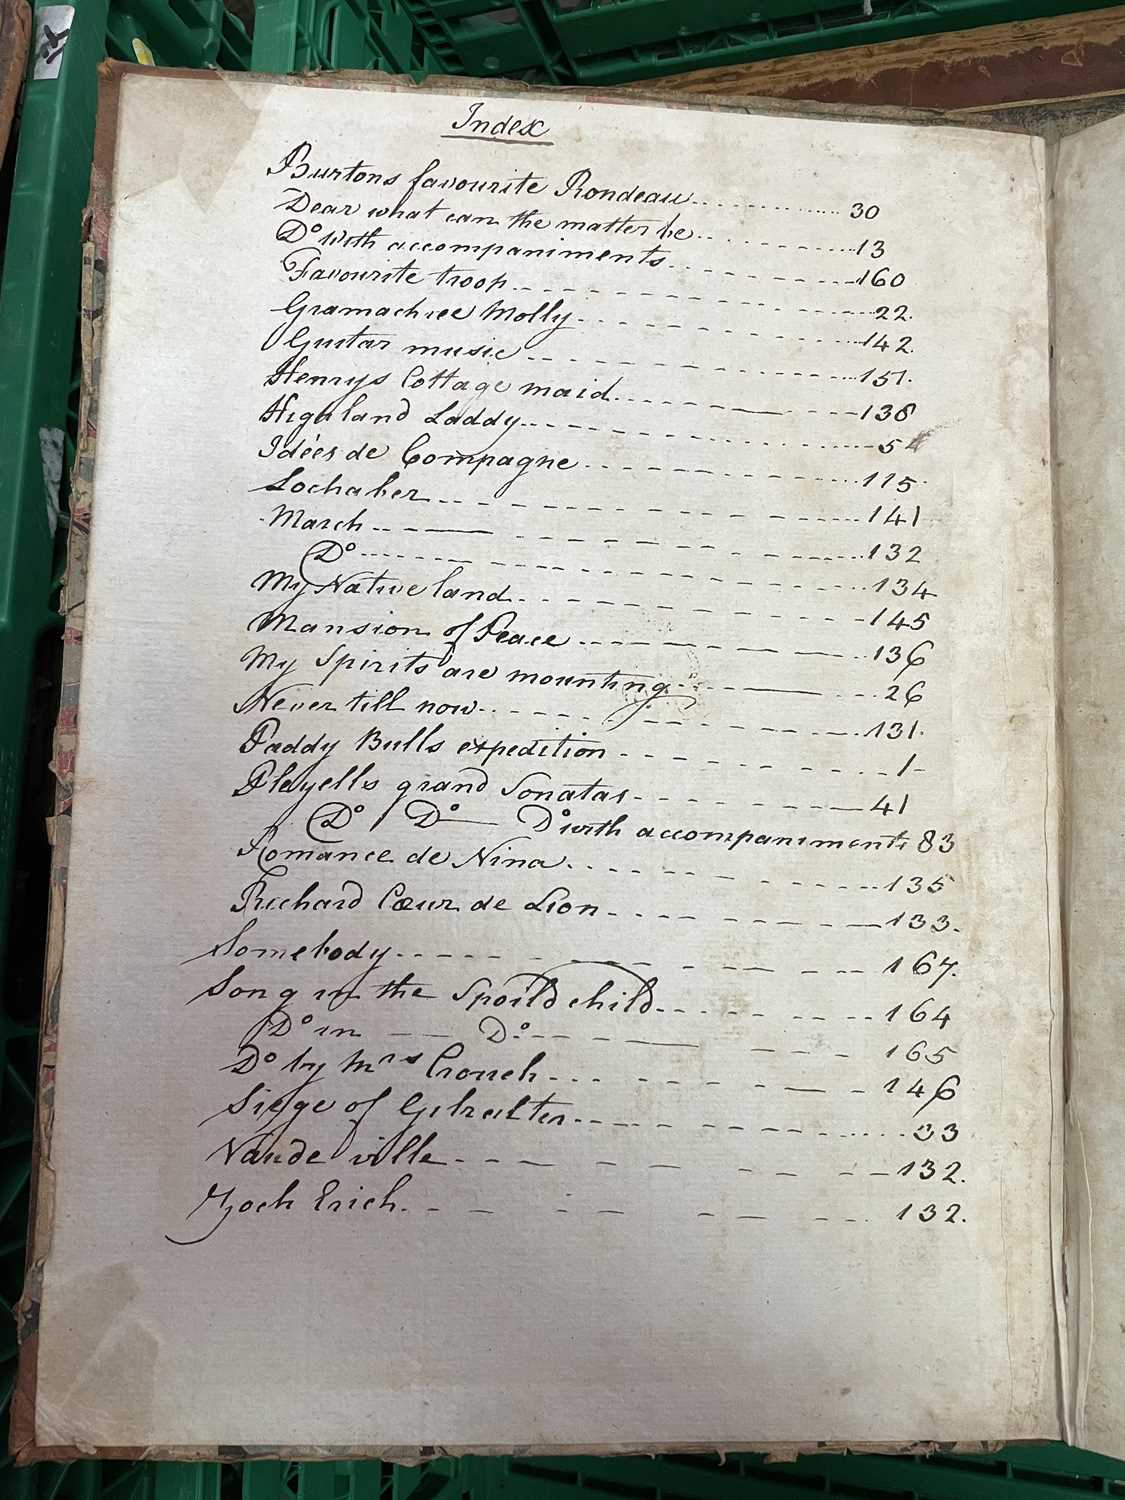 Index
Burtons favourite Rondeau 30
Dear what can the matter be 13
Do with accompaniments 160
Favourite troop 22.
Gramachree Molly 142.
Guitar music 151.
Henrys Cottage maid 138
Highland Laddy 54
Idées de Compagne 115
Lochaber 141
March 132
Do 134
My Native land 145
Mansion of Peace 136
My Spirits are mounting 26
Never till now 131.
Paddy Bulls expedition 1
Pleyells grand Sonatas 41
Do Do Do with accompaniments 83
Romance de Nina 135
Richard Cœur de Lion 133.
Somebody 167.
Song in the Spoild child 164
Do in Do 165
Do by Mrs Crouch 146
Siege of Gibralter 33
Vaude ville 132.
Zoch Erich 132.